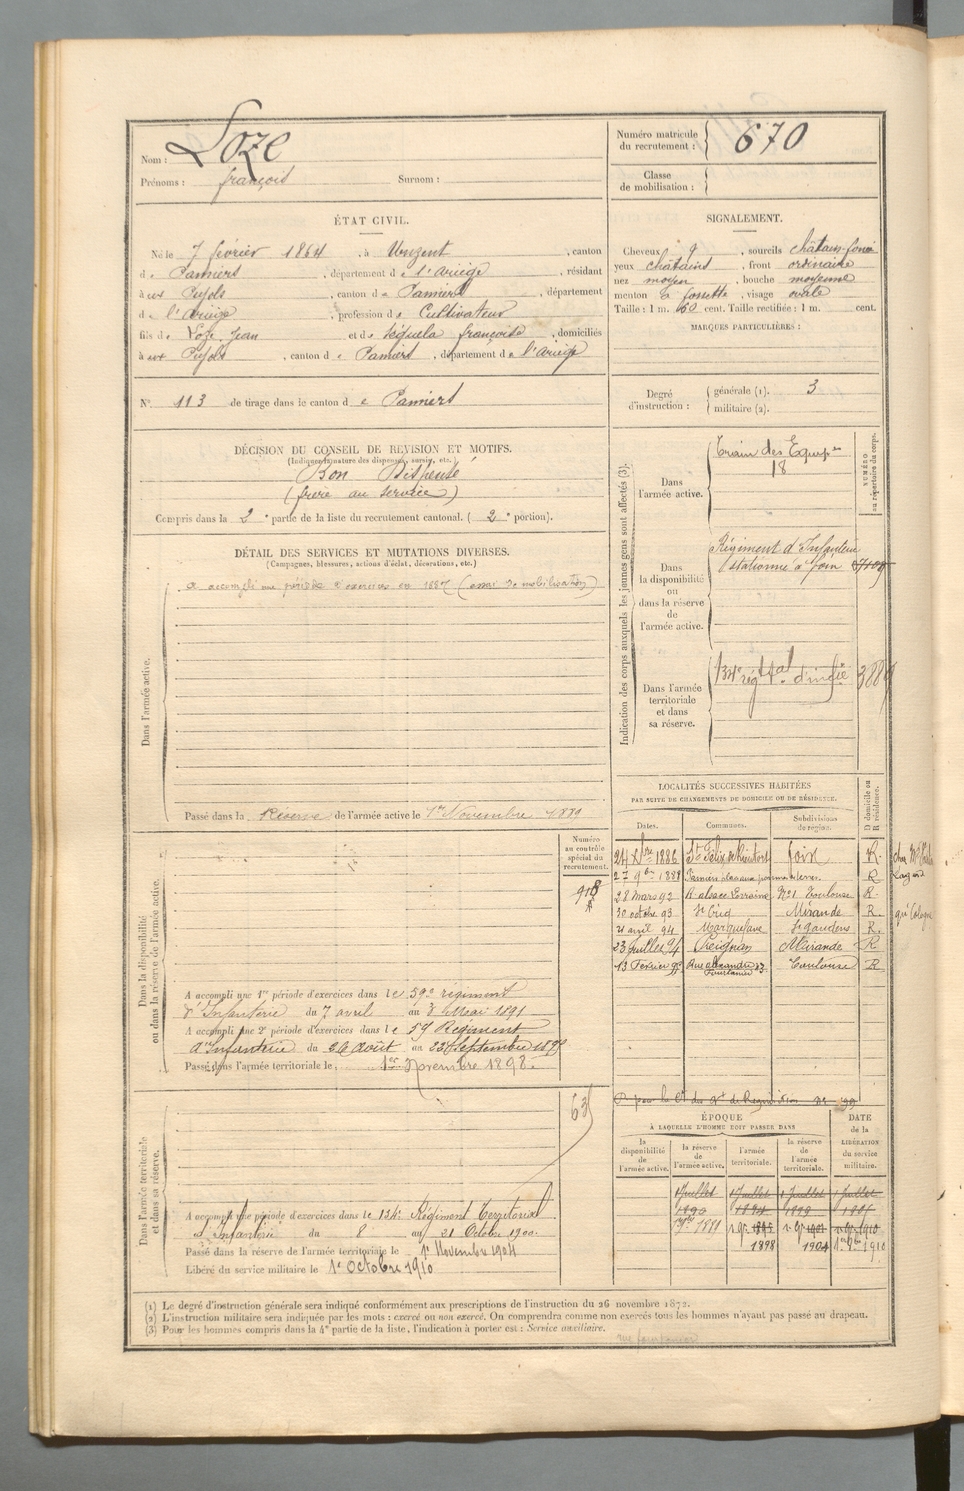 Nom : Loze
Prénoms : françois Surnom :
Numéro matricule du recrutement : 670
Classe de mobilisation :
ÉTAT CIVIL.
Né le 7 février 1864, à Unzent, canton
de Pamiers, département de l'Ariège, résidant
à aux Pujols, canton de Pamiers, département
de l'Ariège, profession de Cultivateur
fils de Loze Jean et de Séquéla françoise, domiciliés
à aux Pujols, canton de Pamiers, département de l'Ariège
N° 113 de tirage dans le canton de Pamiers
SIGNALEMENT.
Cheveux, sourcils châtain-foncé
yeux châtains, front ordinaire
nez moyen, bouche moyenne
menton à fossette, visage ovale
Taille : 1 m. 60 cent. Taille rectifiée : 1 m. cent.
MARQUES PARTICULIÈRES :
Degré d'instruction : générale (1). 3
militaire (2).
DÉCISION DU CONSEIL DE REVISION ET MOTIFS.
(Indiquer la nature des dispenses, sursis, etc.)
Bon Dispensé
(frère au service)
Compris dans la 2e partie de la liste du recrutement cantonal. (2e portion).
DÉTAIL DES SERVICES ET MUTATIONS DIVERSES.
(Campagnes, blessures, actions d'éclat, décorations, etc.)
Dans l'armée active.
a accompli une période d'exercices en 1887 (essai de mobilisation)
Passé dans la Réserve de l'armée active le 1er Novembre 1889
Indication des corps auxquels les jeunes gens sont affectés (3).
NUMÉRO au répertoire du corps.
Dans l'armée active.
Train des Equip.es
18
Dans la disponibilité ou dans la réserve de l'armée active.
Régiment d'Infanterie
stationné à Foix
Dans l'armée territoriale et dans sa réserve.
134e rég.t t.al d'inf.ie
LOCALITÉS SUCCESSIVES HABITÉES
PAR SUITE DE CHANGEMENTS DE DOMICILE OU DE RÉSIDENCE.
Dates. Communes. Subdivisions de région. D domicile ou R résidence.
24 Xbre 1886 St Félix de Rieutord Foix R.
27 9bre 1888 Pamiers R
28 mars 92 R. alsace Lorraine No 1 Toulouse R.
30 octobre 93 St Criq Mirande R.
21 avril 94 Marquefave St Gaudens R.
23 Juillet 94 Preignan Mirande R
13 Février 95 Rue alexandre 27 Toulouse R
Dans la disponibilité ou dans la réserve de l'armée active.
Numéro au contrôle spécial du recrutement.
918
A accompli une 1re période d'exercices dans le 59e régiment
d'Infanterie du 7 avril au 4 Mai 1891
A accompli une 2e période d'exercices dans le 59 Régiment
d'Infanterie du 26 Août au 22 Septembre
Passé dans l'armée territoriale le 1er Novembre 1898.
ÉPOQUE
À LAQUELLE L'HOMME DOIT PASSER DANS
DATE de la LIBÉRATION du service militaire.
la disponibilité de l'armée active.
la réserve de l'armée active.
l'armée territoriale.
la réserve de l'armée territoriale.
1 Juillet 1 Juillet 1 Juillet 1 Juillet
1890
1898 1904 1910
Dans l'armée territoriale et dans sa réserve.
63
A accompli une période d'exercices dans le 134e Régiment Territorial
d'Infanterie du 8 au 21 Octobre 1900.
Passé dans la réserve de l'armée territoriale le 1er Novembre 1904
Libéré du service militaire le 1er Octobre 1910
(1) Le degré d'instruction générale sera indiqué conformément aux prescriptions de l'instruction du 26 novembre 1872.
(2) L'instruction militaire sera indiquée par les mots : exercé ou non exercé. On comprendra comme non exercés tous les hommes n'ayant pas passé au drapeau.
(3) Pour les hommes compris dans la 4e partie de la liste, l'indication à porter est : Service auxiliaire.